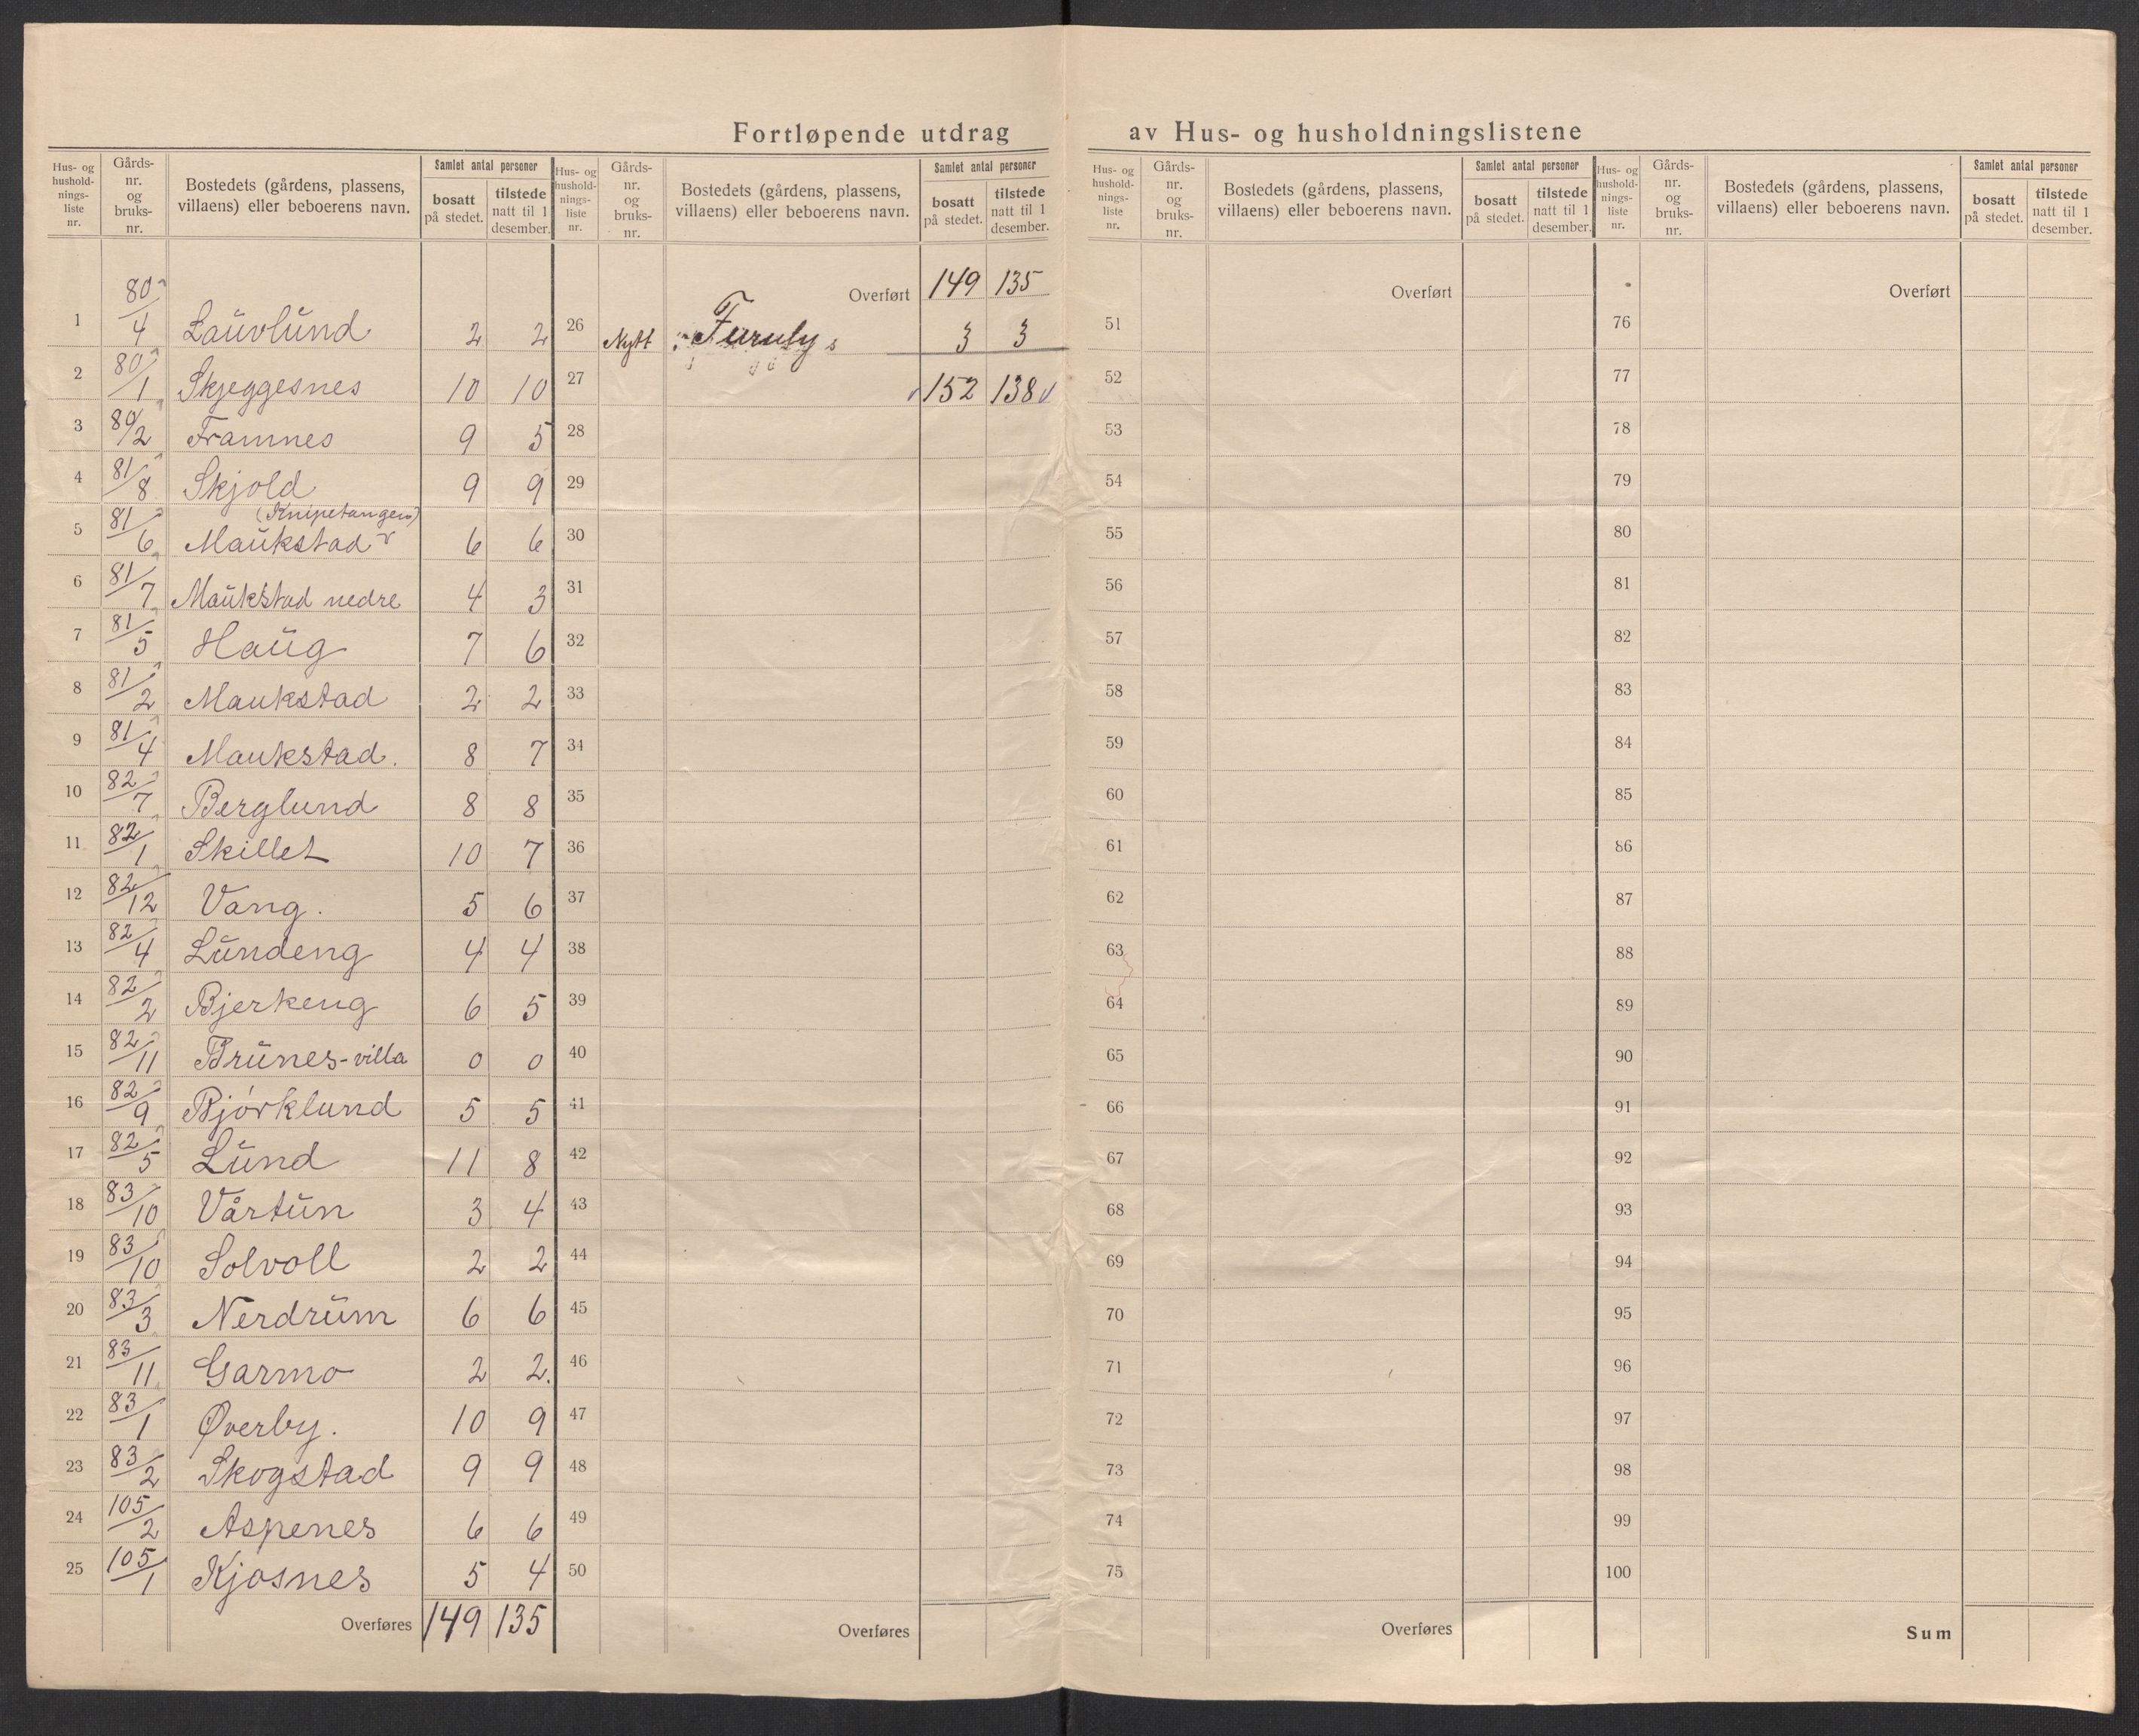 Fortløpende utdrag av Hus- og husholdningslistene
Hus- og hushold- nings- liste nr. Gårds- nr. og bruks- nr. Bostedets (gårdens, plassens, villaens) eller beboerens navn. Samlet antal personer bosatt på stedet. tilstede natt til 1 desember.
1 80/4 Lauvlund 2 2
2 80/1 Skjeggesnes 10 10
3 80/2 Framnes 9 5
4 81/8 Skjold 9 9
5 81/6 Maukstad (Knipetangen) 6 6
6 81/7 Maukstad nedre 4 3
7 81/5 Haug 7 6
8 81/2 Maukstad 2 2
9 81/4 Maukstad. 8 7
10 82/7 Berglund 8 8
11 82/1 Skillet 10 7
12 82/12 Vang. 5 6
13 82/4 Lundeng 4 4
14 82/2 Bjerkeng 6 5
15 82/11 Brunes-villa 0 0
16 82/9 Bjórklund 5 5
17 82/5 Lund 11 8
18 83/10 Vårtun 3 4
19 83/10 Solvoll 2 2
20 83/3 Nerdrum 6 6
21 83/11 Garmo 2 2.
22 83/1 Øverby. 10 9
23 83/2 Skogstad 9 9
24 105/2 Aspenes 6 6
25 105/1 Kjosnes 5 4
Overføres 149 135
Hus- og hushold- nings- liste nr. Gårds- nr. og bruks- nr. Bostedets (gårdens, plassens, villaens) eller beboerens navn. Samlet antal personer bosatt på stedet. tilstede natt til 1 desember.
Overført 149 135
26 Nytt Furuly 3 3
27 152 138
28
29
30
31
32
33
34
35
36
37
38
39
40
41
42
43
44
45
46
47
48
49
50
Overføres
Hus- og hushold- nings- liste nr. Gårds- nr. og bruks- nr. Bostedets (gårdens, plassens, villaens) eller beboerens navn. Samlet antal personer bosatt på stedet. tilstede natt til 1 desember.
Overført
51
52
53
54
55
56
57
58
59
60
61
62
63
64
65
66
67
68
69
70
71
72
73
74
75
Overføres
Hus- og hushold- nings- liste nr. Gårds- nr. og bruks- nr. Bostedets (gårdens, plassens, villaens) eller beboerens navn. Samlet antal personer bosatt på stedet. tilstede natt til 1 desember.
Overført
76
77
78
79
80
81
82
83
84
85
86
87
88
89
90
91
92
93
94
95
96
97
98
99
100
Sum